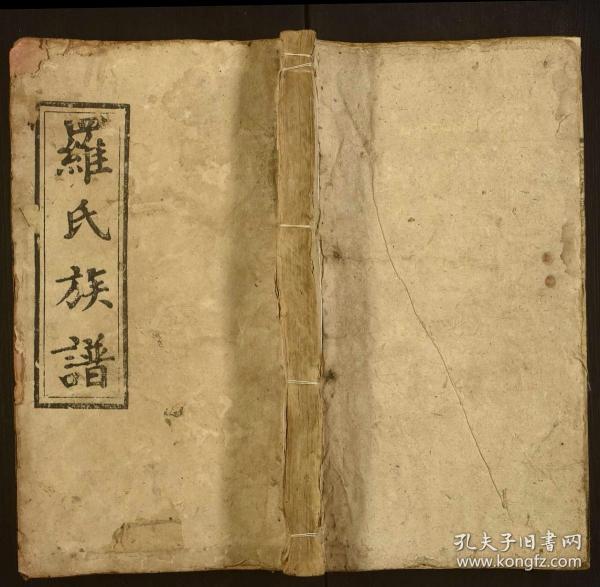 羅氏族譜
孔夫子旧书网
www.kongfz.com